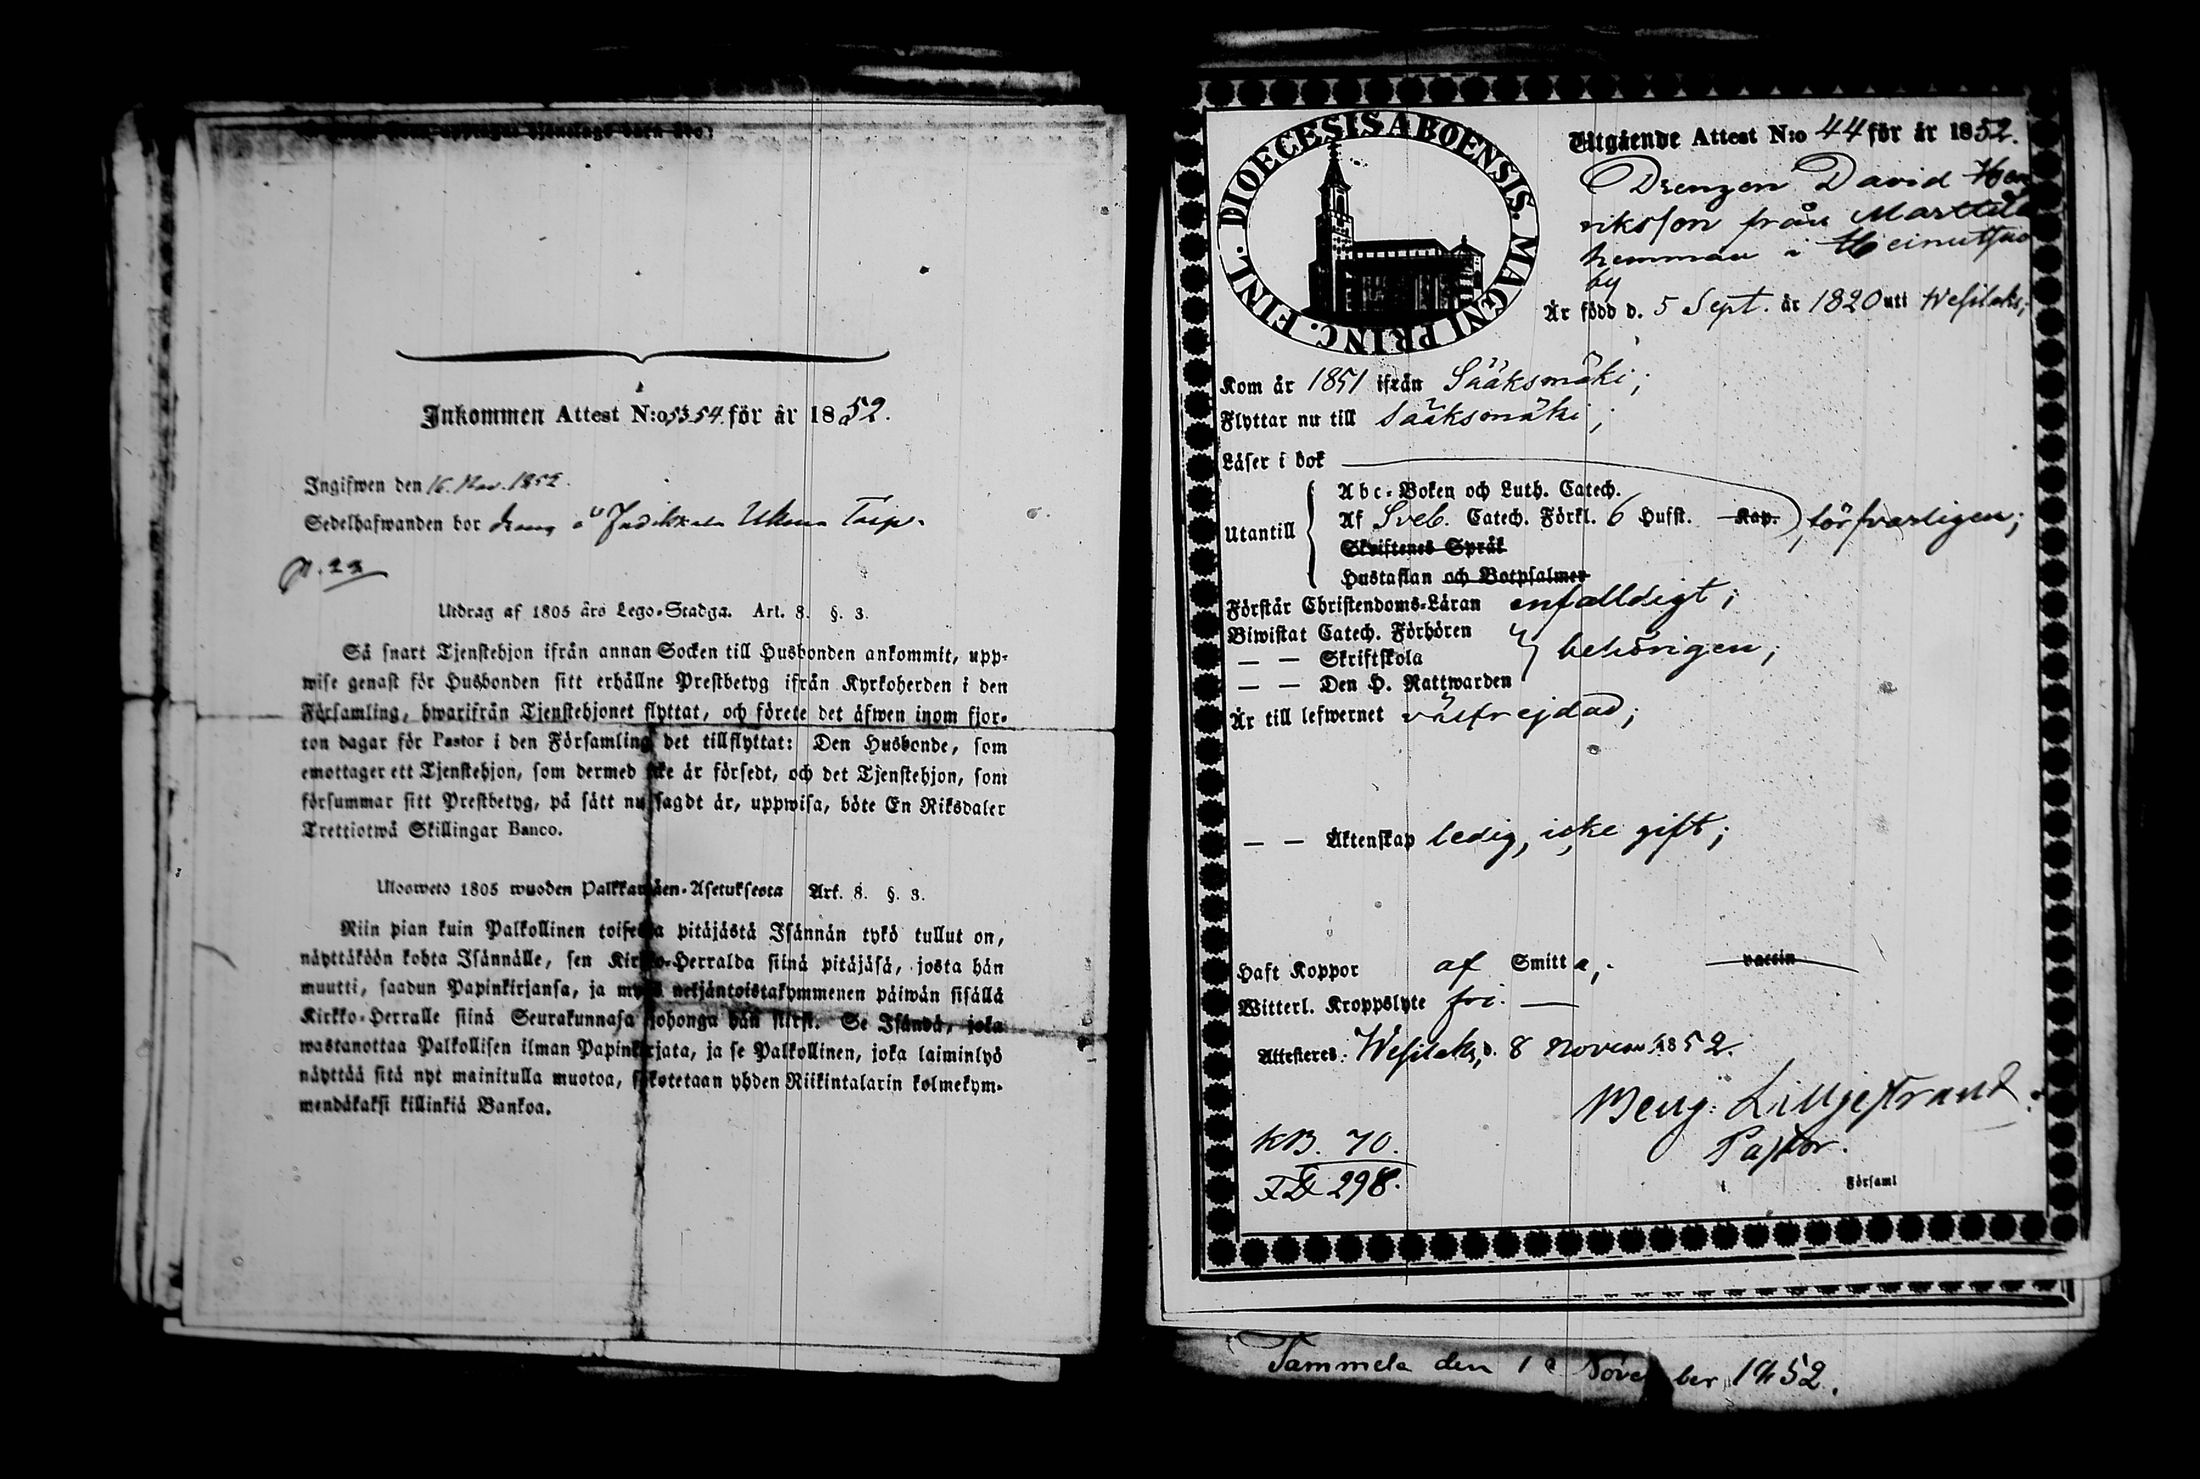 Inkommen Attest N:o 53 54. för år 1852.
Ingifwen den 16. Nov. 1852.
Sedelhafwanden bor dräng
p. 23
Utdrag af 1805 års Lego-Stadga. Art. 8. §. 3.
Så snart Tjenstehjon ifrån annan Socken till Husbonden ankommit, upp-
wise genast för Husbonden sitt erhållne Prestbetyg ifrån Kyrkoherden i den
Församling, hwarifrån Tjenstehjonet flyttat, och förete det äfwen inom fjor-
ton dagar för Pastor i den Församling det tillflyttat: Den Husbonde, som
emottager ett Tjenstehjon, som dermed icke är försedt, och det Tjenstehjon, som
försummar sitt Prestbetyg, på sätt nu sagdt är, uppwisa, böte En Riksdaler
Trettiotwå Skillingar Banco.
Ulosweto 1805 wuoden Palkkawäen-Asetuksesta Art. 8. §. 3.
Niin pian kuin Palkollinen toisesta pitäjästä Isännän tykö tullut on,
näyttäköön kohta Isännälle, sen Kirkko-Herralda siinä pitäjäsä, josta hän
muutti, saadun Papinkirjansa, ja myös neljäntoistakymmenen päiwän sisällä
Kirkko-Herralle siinä Seurakunnasa johonga hän siirst. Se Isändä, joka
wastanottaa Palkollisen ilman Papinkirjata, ja se Palkollinen, joka laiminlyö
näyttää sitä nyt mainitulla muotoa, sakotetaan yhden Riikintalarin kolmekym-
mendäkaksi killinkiä Bankoa.
DIOECESIS ABOENSIS. MAGNI PRINC. FINL.
Utgående Attest N:o 44 för år 1852.
Drengen David Hen
riksson från Marttila
hemman i
by
Är född d. 5 Sept. år 1820 uti Wesilaks;
Kom år 1851 ifrån Sääksmäki;
Flyttar nu till Sääksmäki;
Läser i bok
Utantill
Abc-Boken och Luth. Catech.
Af Sveb. Catech. Förkl. 6 Hufst. Kap. försvarligen;
Skriftenes Språk
Hustaflan och Botpsalmer
Förstår Christendoms-Läran enfalldigt;
Biwistat Catech. Förhören
— — Skriftskola behörigen;
— — Den H. Nattwarden
Är till lefwernet välfrejdad;
— — Äktenskap ledig, icke gift;
Haft Koppor af Smitta; vaccin
Witterl. Kroppslyte fri. —
Attesteres: Wesilaks, d. 8 Novem. 1852.
Benj. Lilljestrand.
Pastor.
i Församl
KB. 70.
298.
Tammela den November 1852.